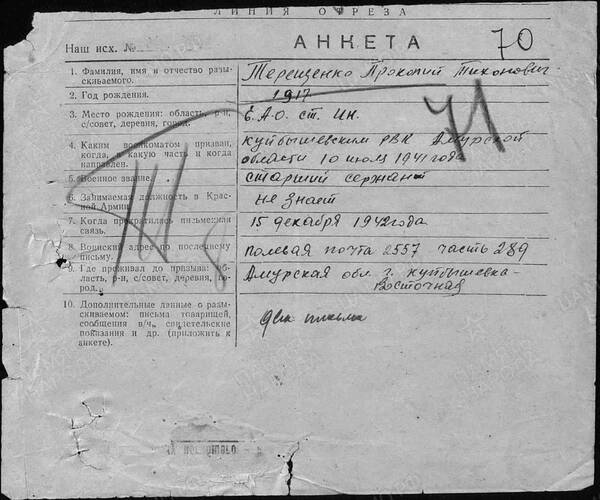 ЛИНИЯ ОТРЕЗА
Наш исх. №
АНКЕТА
70
71
1. Фамилия, имя и отчество разыскиваемого.
Терещенко Прокопий Тихонович
2. Год рождения.
1917
3. Место рождения: область, р-н, с/совет, деревня, город.
Е.А.О. ст. Ин.
4. Каким военкоматом призван, когда, в какую часть и когда направлен.
Куйбышевским РВК Амурской
области 10 июля 1941 года
5. Военное звание.
старший сержант
6. Занимаемая должность в Красной Армии.
не знает
7. Когда прекратилась письменная связь.
15 декабря 1942 года
8. Воинский адрес по последнему письму.
полевая почта 2557 часть 289
9. Где проживал до призыва: область, р-н, с/совет, деревня, город.
Амурская обл. г. Куйбышевка-
Восточная
10. Дополнительные данные о разыскиваемом: письма товарищей, сообщения в/ч, свидетельские показания и др. (приложить к анкете).
два письма